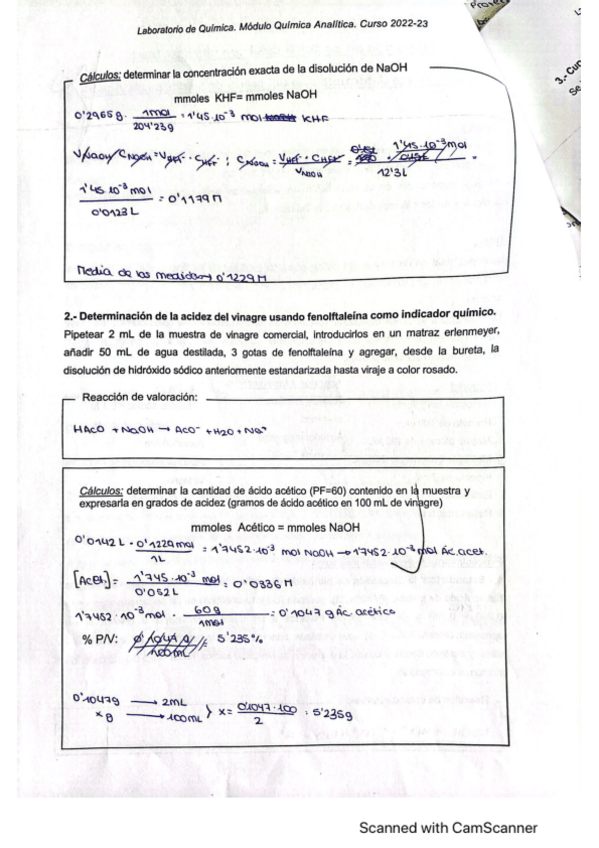 Laboratorio de Química. Módulo Química Analítica. Curso 2022-23
3.- Cur
Se
Cálculos: determinar la concentración exacta de la disolución de NaOH
mmoles KHF= mmoles NaOH
0'2965g · 1mol / 204'23g = 1'45·10⁻³ mol KHF
VNaOH · CNaOH = VKHF · CKHF ; CNaOH = VKHF · CKHF / VNaOH = 1'45·10⁻³ mol / 12'3L =
1'45·10⁻³ mol / 0'0123 L = 0'1179 M
Media de las medidas → 0'1229 M
2.- Determinación de la acidez del vinagre usando fenolftaleína como indicador químico.
Pipetear 2 mL de la muestra de vinagre comercial, introducirlos en un matraz erlenmeyer,
añadir 50 mL de agua destilada, 3 gotas de fenolftaleína y agregar, desde la bureta, la
disolución de hidróxido sódico anteriormente estandarizada hasta viraje a color rosado.
Reacción de valoración:
HAcO + NaOH → AcO⁻ + H2O + Na⁺
Cálculos: determinar la cantidad de ácido acético (PF=60) contenido en la muestra y
expresarla en grados de acidez (gramos de ácido acético en 100 mL de vinagre)
mmoles Acético = mmoles NaOH
0'0142 L · 0'1229 mol / 1L = 1'7452·10⁻³ mol NaOH → 1'7452·10⁻³ mol Ác. acet.
[Acet.] = 1'745·10⁻³ mol / 0'052 L = 0'0336 M
1'7452·10⁻³ mol · 60g / 1mol = 0'1047 g Ác. acético
% P/V: 5'235%
0'1047g → 2mL
x g → 100mL } x = 0'1047·100 / 2 = 5'235g
Scanned with CamScanner